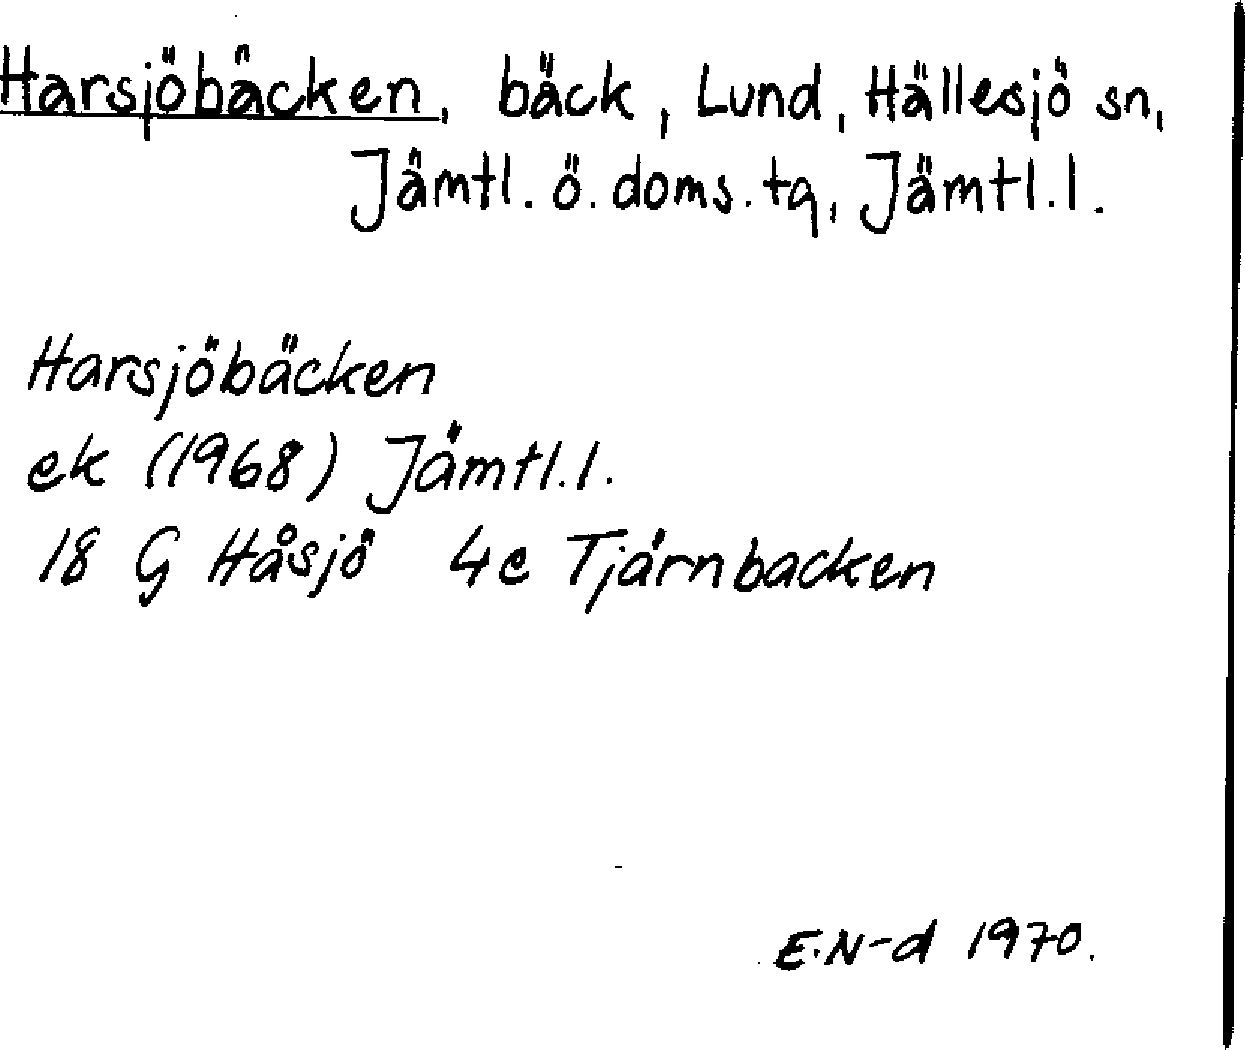 Harsjöbäcken, bäck, Lund, Hällesjö sn,
Jämtl. ö. doms. tg, Jämtl. l.
Harsjöbäcken
ek (1968) Jämtl. l.
18 G Håsjö 4c Tjärnbacken
E.N-d 1970.